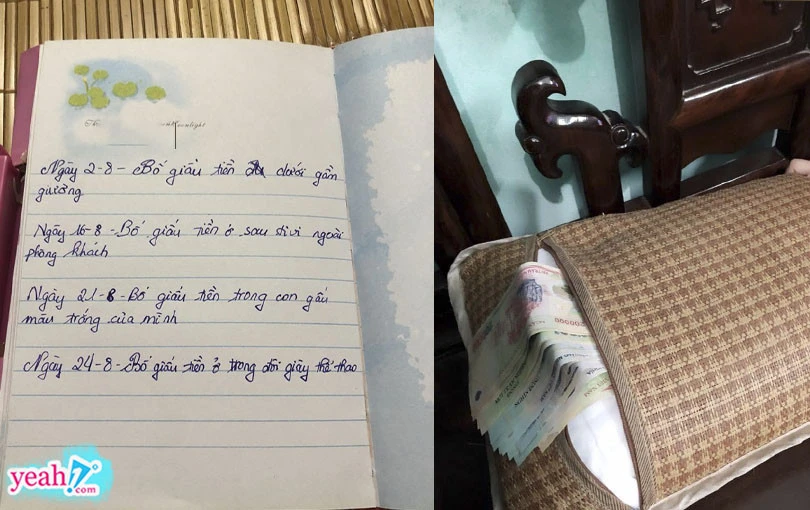 Moonlight
Ngày 2-8 - Bố giấu tiền dưới gầm
giường
Ngày 16-8 - Bố giấu tiền ở sau tivi ngoài
phòng khách
Ngày 21-8 - Bố giấu tiền trong con gấu
màu trắng của mình
Ngày 24-8 - Bố giấu tiền ở trong đôi giày thể thao
yeah1.com